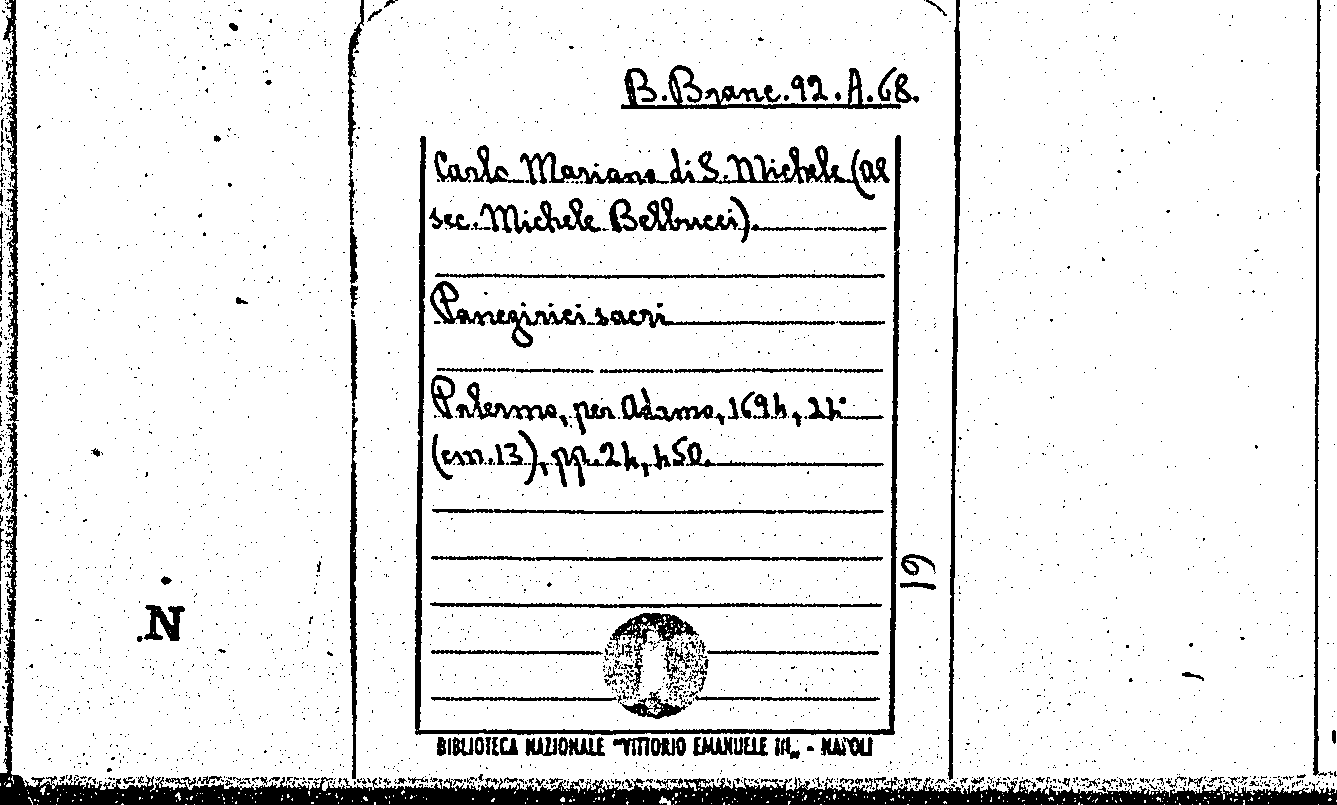 B. Branc. 92. A. 68.
Carlo Mariano di S. Michele (al
sec. Michele Bellucci).
Panegirici sacri
Palermo, per Adamo, 1694, 24°
(cm. 13), pp. 24, 450.
19
.N
BIBLIOTECA NAZIONALE "VITTORIO EMANUELE III„ - NAPOLI